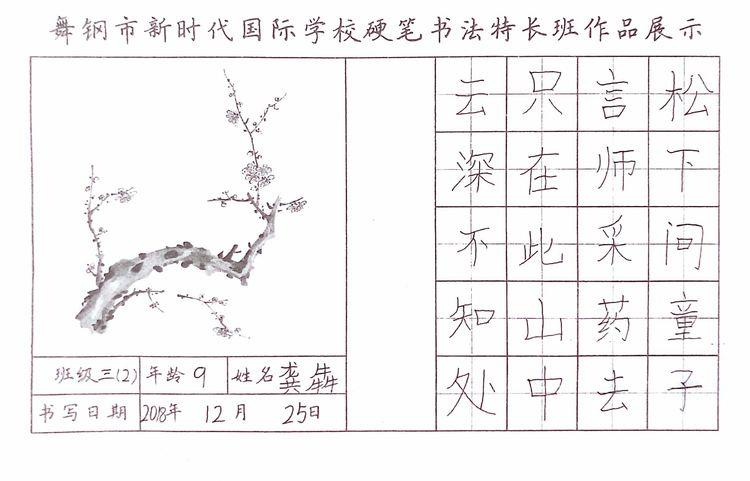 舞钢市新时代国际学校硬笔书法特长班作品展示
松下问童子
言师采药去
只在此山中
云深不知处
班级三(2) 年龄 9 姓名 龚犇
书写日期 2018年 12月 25日